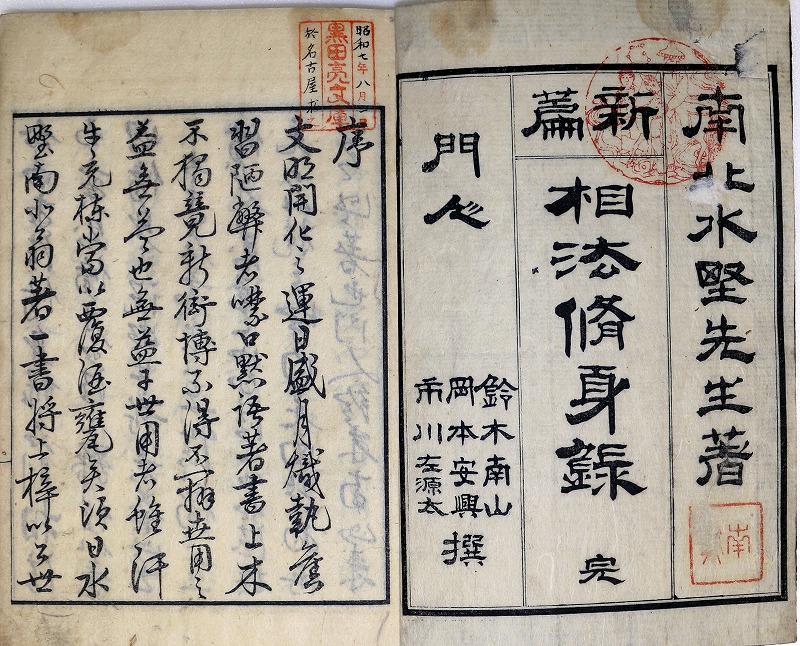 南北水野先生著
新篇
相法脩身録 完
門人
鈴木南山
岡本安興
市川左源太
撰
昭和七年八月
黒田亮文庫
於名古屋
序
文明開化之運日盛月熾執舊
習陋弊者噤口黙語著書上木
不獨競新衒博不得不拼世用之
益無益也無益于世用者雖汗
牛充棟當以覆酒甕矣須日水
野南北翁著一書将上梓以公世